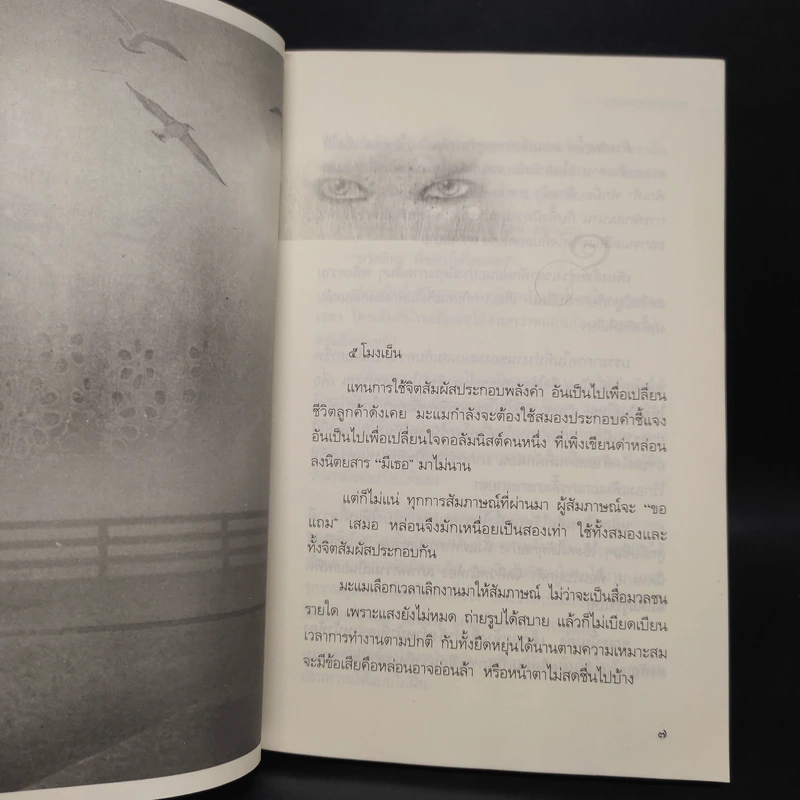 ๕ โมงเย็น
แทนการใช้จิตสัมผัสประกอบพลังคำ อันเป็นไปเพื่อเปลี่ยน
ชีวิตลูกค้าดังเคย มะแมกำลังจะต้องใช้สมองประกอบคำชี้แจง
อันเป็นไปเพื่อเปลี่ยนใจคอลัมนิสต์คนหนึ่ง ที่เพิ่งเขียนด่าหล่อน
ลงนิตยสาร “มีเธอ” มาไม่นาน
แต่ก็ไม่แน่ ทุกการสัมภาษณ์ที่ผ่านมา ผู้สัมภาษณ์จะ “ขอ
แถม” เสมอ หล่อนจึงมักเหนื่อยเป็นสองเท่า ใช้ทั้งสมองและ
ทั้งจิตสัมผัสประกอบกัน
มะแมเลือกเวลาเลิกงานมาให้สัมภาษณ์ ไม่ว่าจะเป็นสื่อมวลชน
รายใด เพราะแสงยังไม่หมด ถ่ายรูปได้สบาย แล้วก็ไม่เบียดเบียน
เวลาการทำงานตามปกติ กับทั้งยืดหยุ่นได้นานตามความเหมาะสม
จะมีข้อเสียคือหล่อนอาจอ่อนล้า หรือหน้าตาไม่สดชื่นไปบ้าง
๗